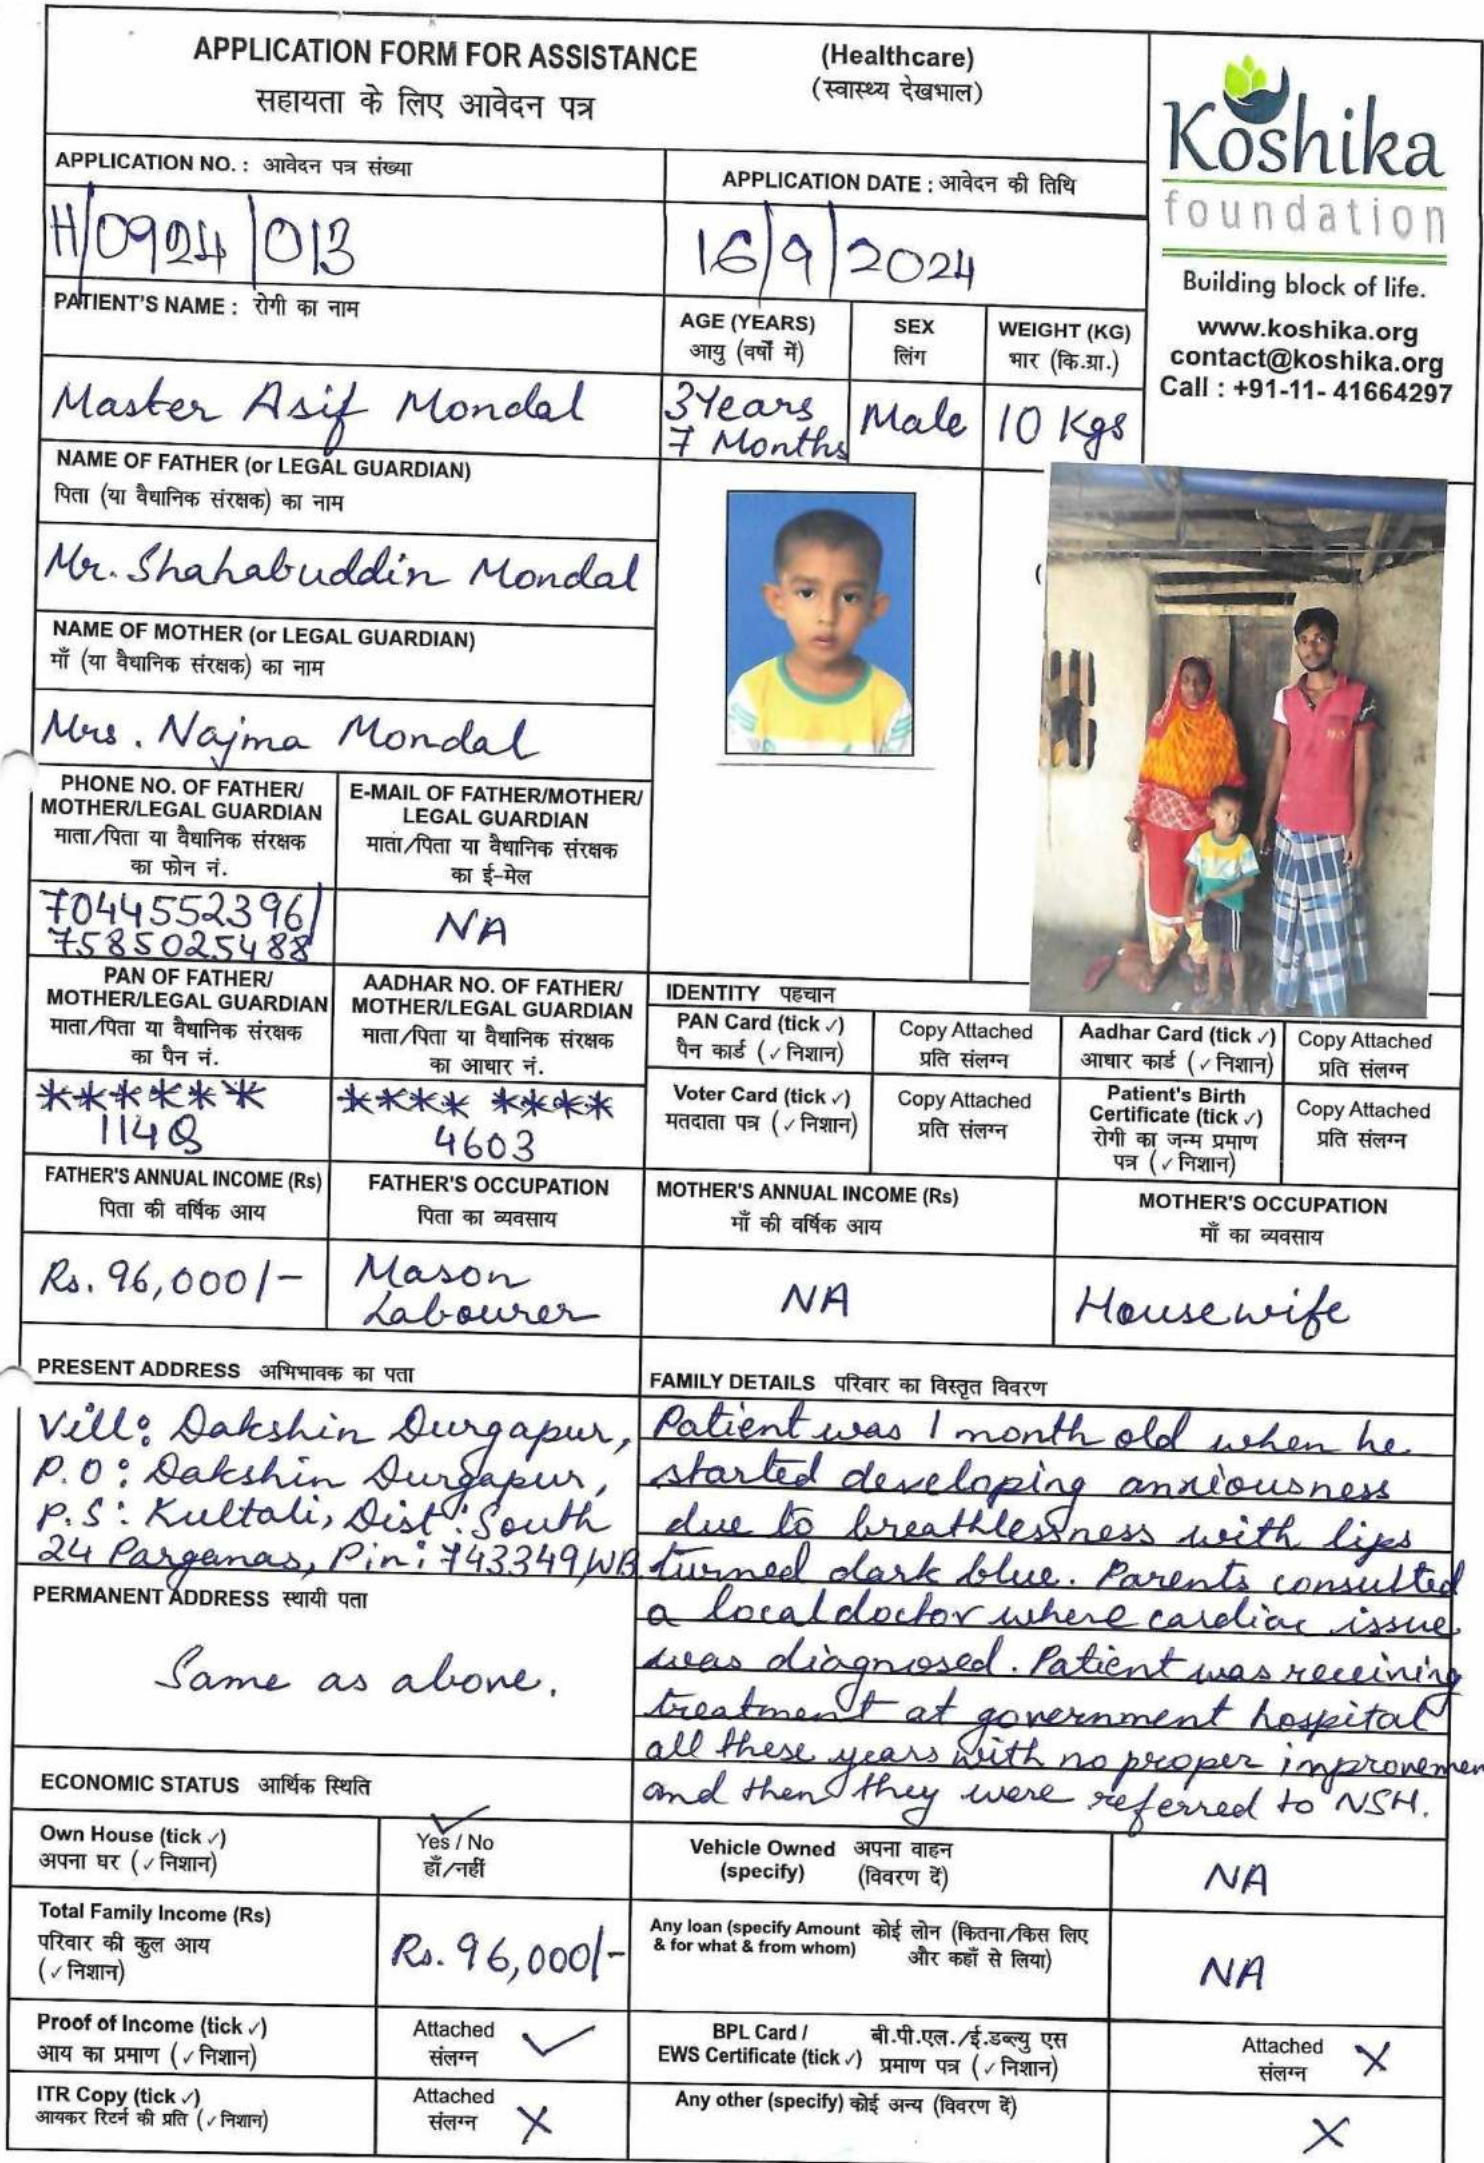 APPLICATION FORM FOR ASSISTANCE (Healthcare)
सहायता के लिए आवेदन पत्र (स्वास्थ्य देखभाल)
Koshika
foundation
Building block of life.
www.koshika.org
contact@koshika.org
Call : +91-11- 41664297
APPLICATION NO. : आवेदन पत्र संख्या
H/0924/013
APPLICATION DATE : आवेदन की तिथि
16/9/2024
PATIENT'S NAME : रोगी का नाम
Master Asif Mondal
AGE (YEARS)
आयु (वर्षों में)
3 Years
7 Months
SEX
लिंग
Male
WEIGHT (KG)
भार (कि.ग्रा.)
10 Kgs
NAME OF FATHER (or LEGAL GUARDIAN)
पिता (या वैधानिक संरक्षक) का नाम
Mr. Shahabuddin Mondal
NAME OF MOTHER (or LEGAL GUARDIAN)
माँ (या वैधानिक संरक्षक) का नाम
Mrs. Najma Mondal
PHONE NO. OF FATHER/
MOTHER/LEGAL GUARDIAN
माता/पिता या वैधानिक संरक्षक
का फोन नं.
7044552396/
7585025488
E-MAIL OF FATHER/MOTHER/
LEGAL GUARDIAN
माता/पिता या वैधानिक संरक्षक
का ई-मेल
NA
PAN OF FATHER/
MOTHER/LEGAL GUARDIAN
माता/पिता या वैधानिक संरक्षक
का पैन नं.
******
114Q
AADHAR NO. OF FATHER/
MOTHER/LEGAL GUARDIAN
माता/पिता या वैधानिक संरक्षक
का आधार नं.
**** ****
4603
IDENTITY पहचान
PAN Card (tick ✓)
पैन कार्ड (✓ निशान)
Copy Attached
प्रति संलग्न
Aadhar Card (tick ✓)
आधार कार्ड (✓ निशान)
Copy Attached
प्रति संलग्न
Voter Card (tick ✓)
मतदाता पत्र (✓ निशान)
Copy Attached
प्रति संलग्न
Patient's Birth
Certificate (tick ✓)
रोगी का जन्म प्रमाण
पत्र (✓ निशान)
Copy Attached
प्रति संलग्न
FATHER'S ANNUAL INCOME (Rs)
पिता की वर्षिक आय
Rs. 96,000/-
FATHER'S OCCUPATION
पिता का व्यवसाय
Mason
Labourer
MOTHER'S ANNUAL INCOME (Rs)
माँ की वर्षिक आय
NA
MOTHER'S OCCUPATION
माँ का व्यवसाय
Housewife
PRESENT ADDRESS अभिभावक का पता
Vill: Dakshin Durgapur,
P.O: Dakshin Durgapur,
P.S: Kultali, Dist: South
24 Parganas, Pin: 743349, WB
PERMANENT ADDRESS स्थायी पता
Same as above.
FAMILY DETAILS परिवार का विस्तृत विवरण
Patient was 1 month old when he
started developing anxiousness
due to breathlessness with lips
turned dark blue. Parents consulted
a local doctor where cardiac issue
was diagnosed. Patient was receiving
treatment at government hospital
all these years with no proper improvemen
and then they were referred to NSH.
ECONOMIC STATUS आर्थिक स्थिति
Own House (tick ✓)
अपना घर (✓ निशान)
✓
Yes / No
हाँ/नहीं
Vehicle Owned अपना वाहन
(specify) (विवरण दें)
NA
Total Family Income (Rs)
परिवार की कुल आय
(✓ निशान)
Rs. 96,000/-
Any loan (specify Amount कोई लोन (कितना/किस लिए
& for what & from whom) और कहाँ से लिया)
NA
Proof of Income (tick ✓)
आय का प्रमाण (✓ निशान)
Attached ✓
संलग्न
BPL Card / बी.पी.एल./ई.डब्ल्यु एस
EWS Certificate (tick ✓) प्रमाण पत्र (✓ निशान)
Attached X
संलग्न
ITR Copy (tick ✓)
आयकर रिटर्न की प्रति (✓ निशान)
Attached
संलग्न X
Any other (specify) कोई अन्य (विवरण दें)
X